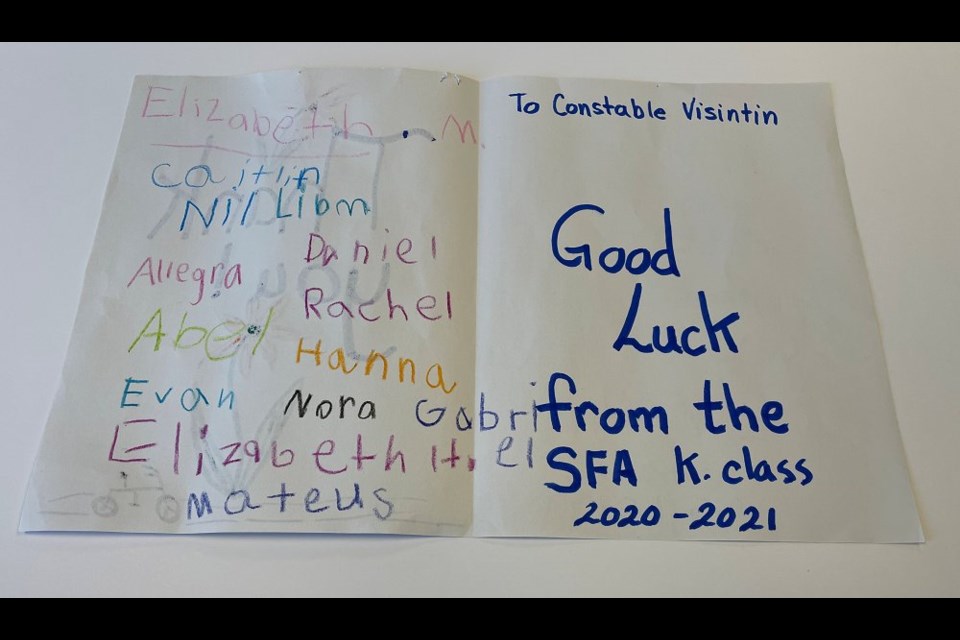 Elizabeth . M.
Caitlin
Nil Liban
Daniel
Allegra
Rachel
Abel
Hanna
Evan Nora Gabriel
Elizabeth H.
Mateus
To Constable Visintin
Good
Luck
from the
SFA K. class
2020-2021